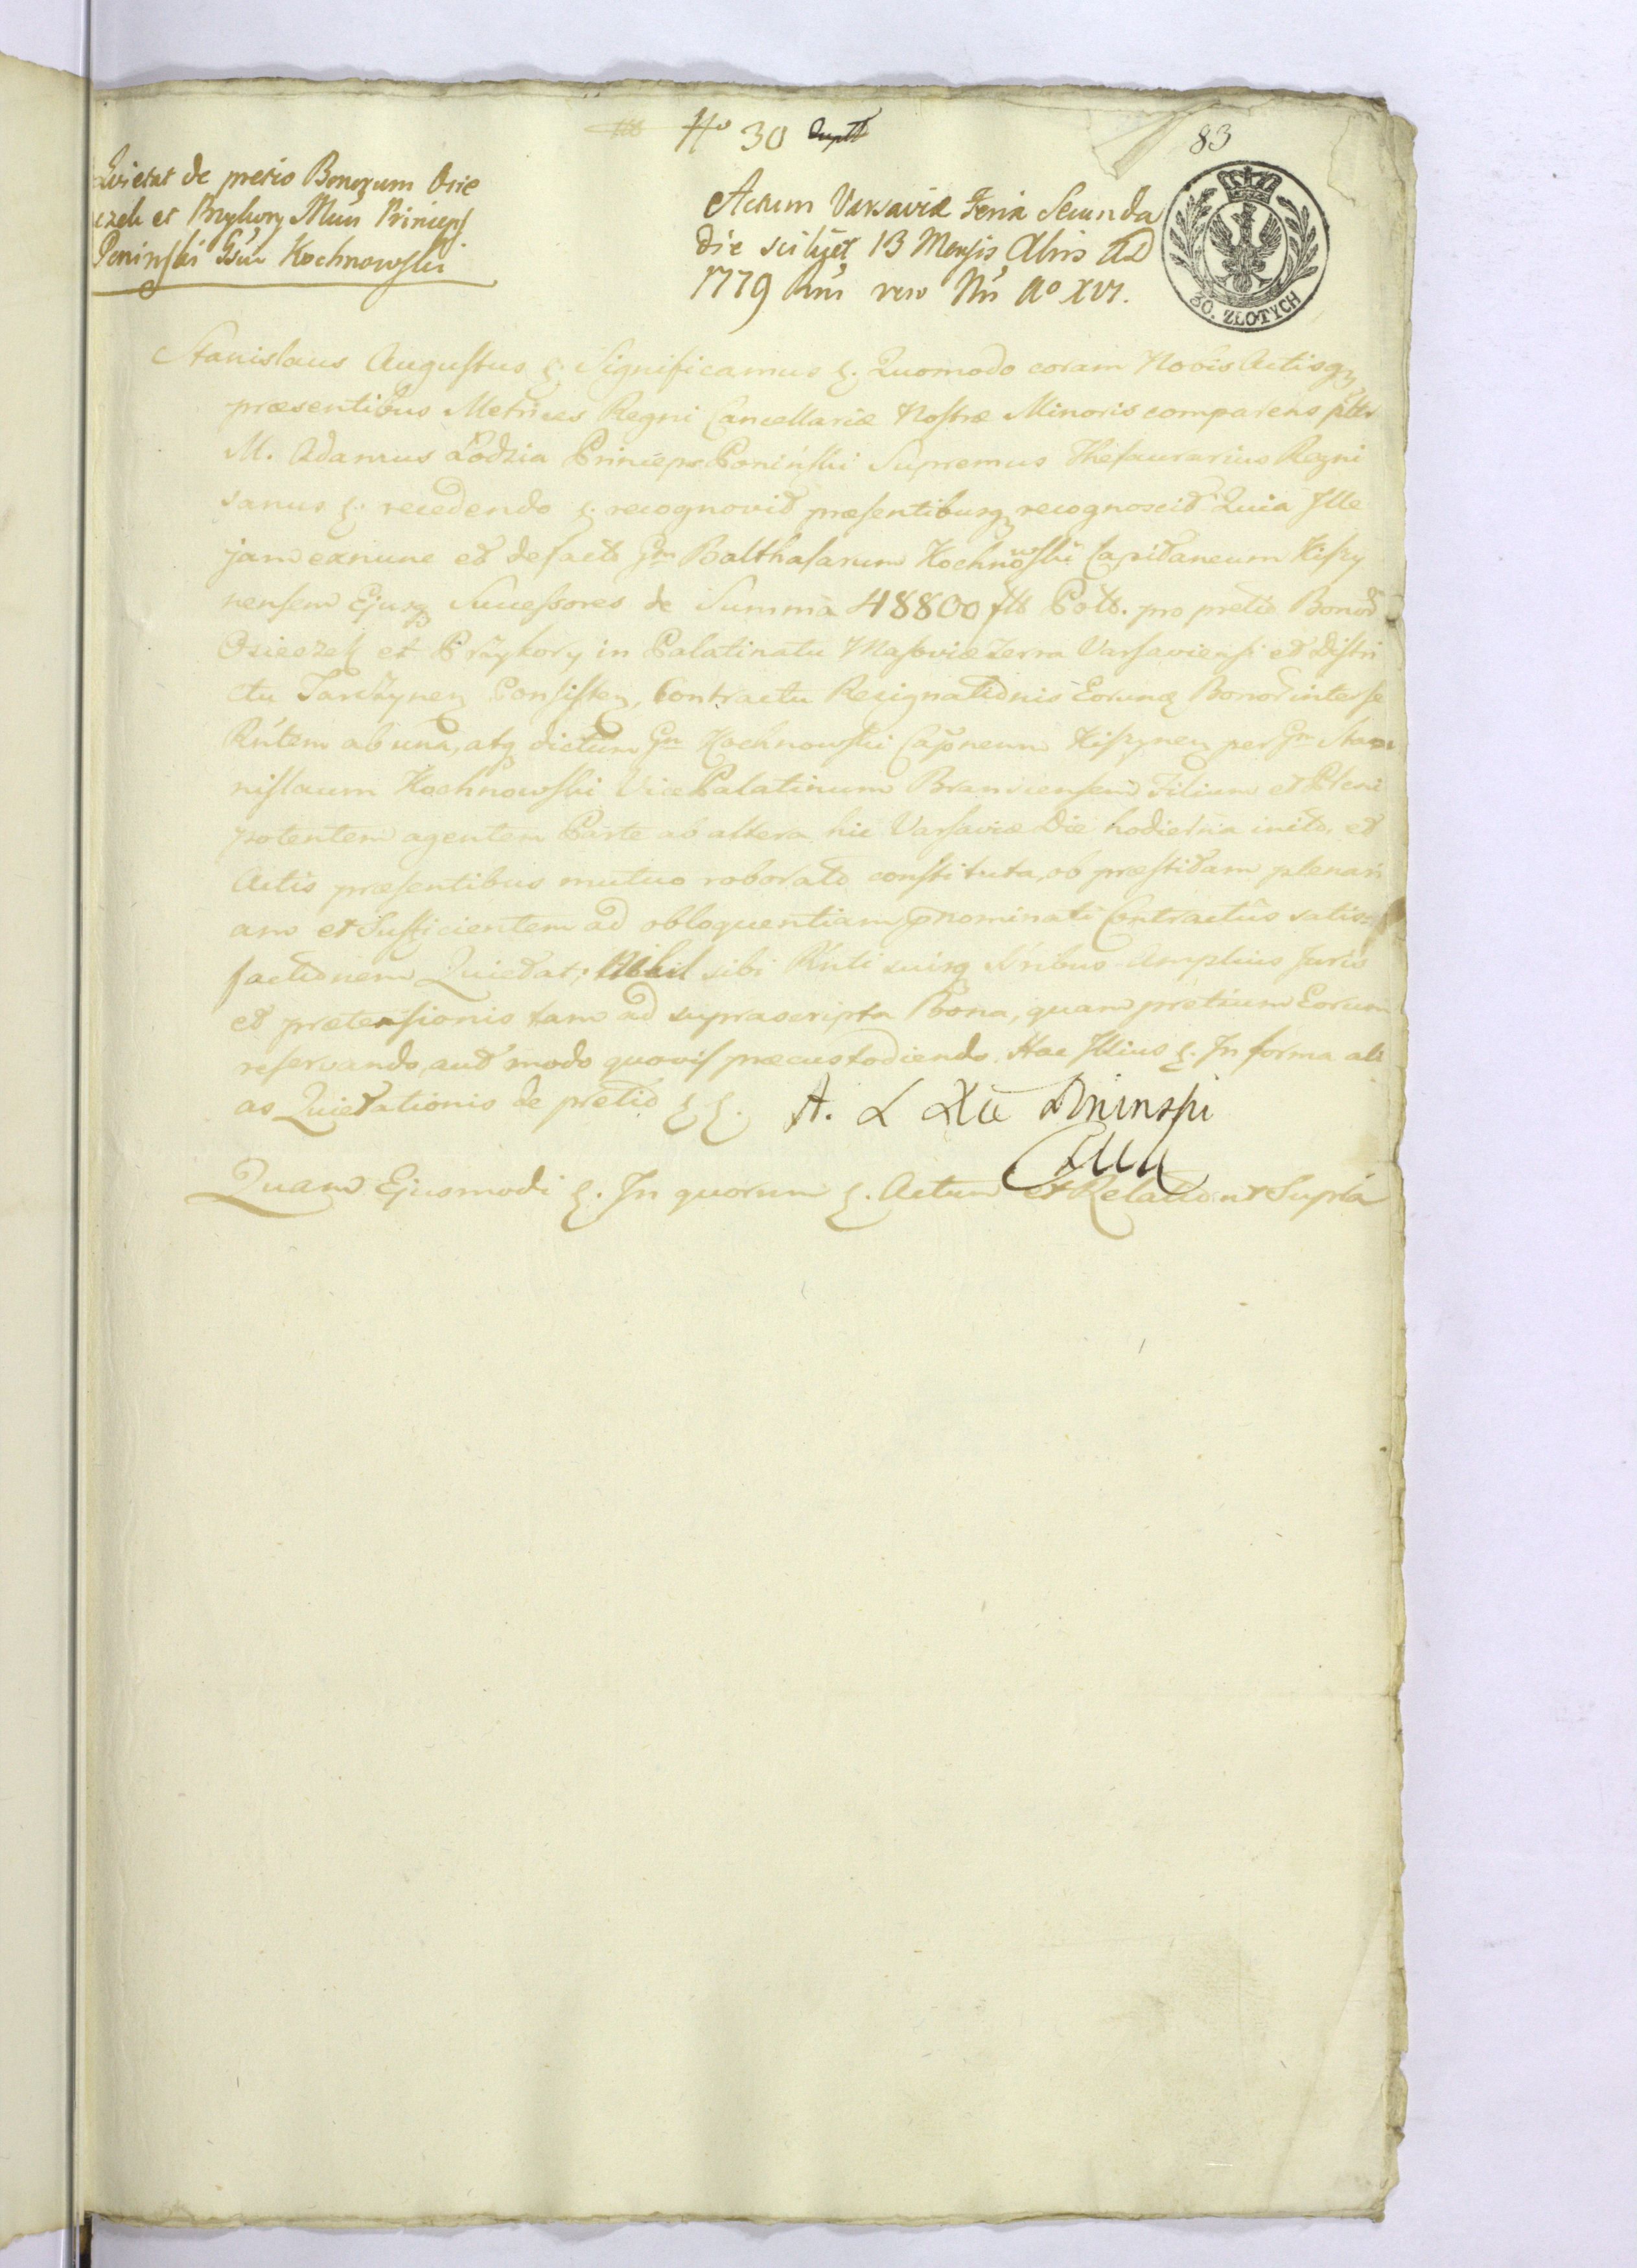 No 30
83
Quietat de pretio Bonorum Osie
czek et Przykory Mus Princeps
Poninski Gsm Kochnowski
Actum Varsaviæ Feria Secunda
die scilicet 13 Mensis Xbris AD
1779 Rni vero Nri Ao XVI.
30. ZŁOTYCH
Stanislaus Augustus &. Significamus &. Quomodo coram Nobis Actisqz
præsentibus Metrices Regni Cancellariæ Nostræ Minoris comparens
M. Adamus Łodzia Princeps Poniński Supremus Thesaurarius Regni
sanus &. recedendo &. recognovit præsentibusqz recognoscit Quia Ille
jam exnunc et defacto Gm Balthasarum Kochnowski Capitaneum Kiszy
nensem Ejusqz Successores de Summa 48800 fll Poll. pro pretio Bonor
Osieczek et Przykory in Palatinatu Masoviæ Terra Varsaviensi et Distri
ctu Tarczynen Consisten, Contractu Resignationis Eorundz Bonor inter se
Rntem ab una, atqz dictum Gm Kochnowski Capneum Kiszynen per Gm Sta
nislaum Kochnowski Vice Palatinum Bransensem Filium et Pleni
potentem agentem Parte ab altera hic Varsaviæ Die hodierna inito, et
Actis præsentibus mutuo roborato constituta, ob præstitam plenari
am et Sufficientem ad obloquentiam pnominati Contractûs satis=
factionem Quietat; Nihil sibi Rnti suisqz Sribus Amplius Juris
et prætensionis tam ad suprascripta Bona, quam pretium Eorum
reservando, aut modo quovis præcustodiendo. Hac Illius &. In forma ali
as Quietationis de pretio &&. A. Ł Xże Poninski
Quam Ejusmodi &. In quorum &. Actum et Relatio ut Supra